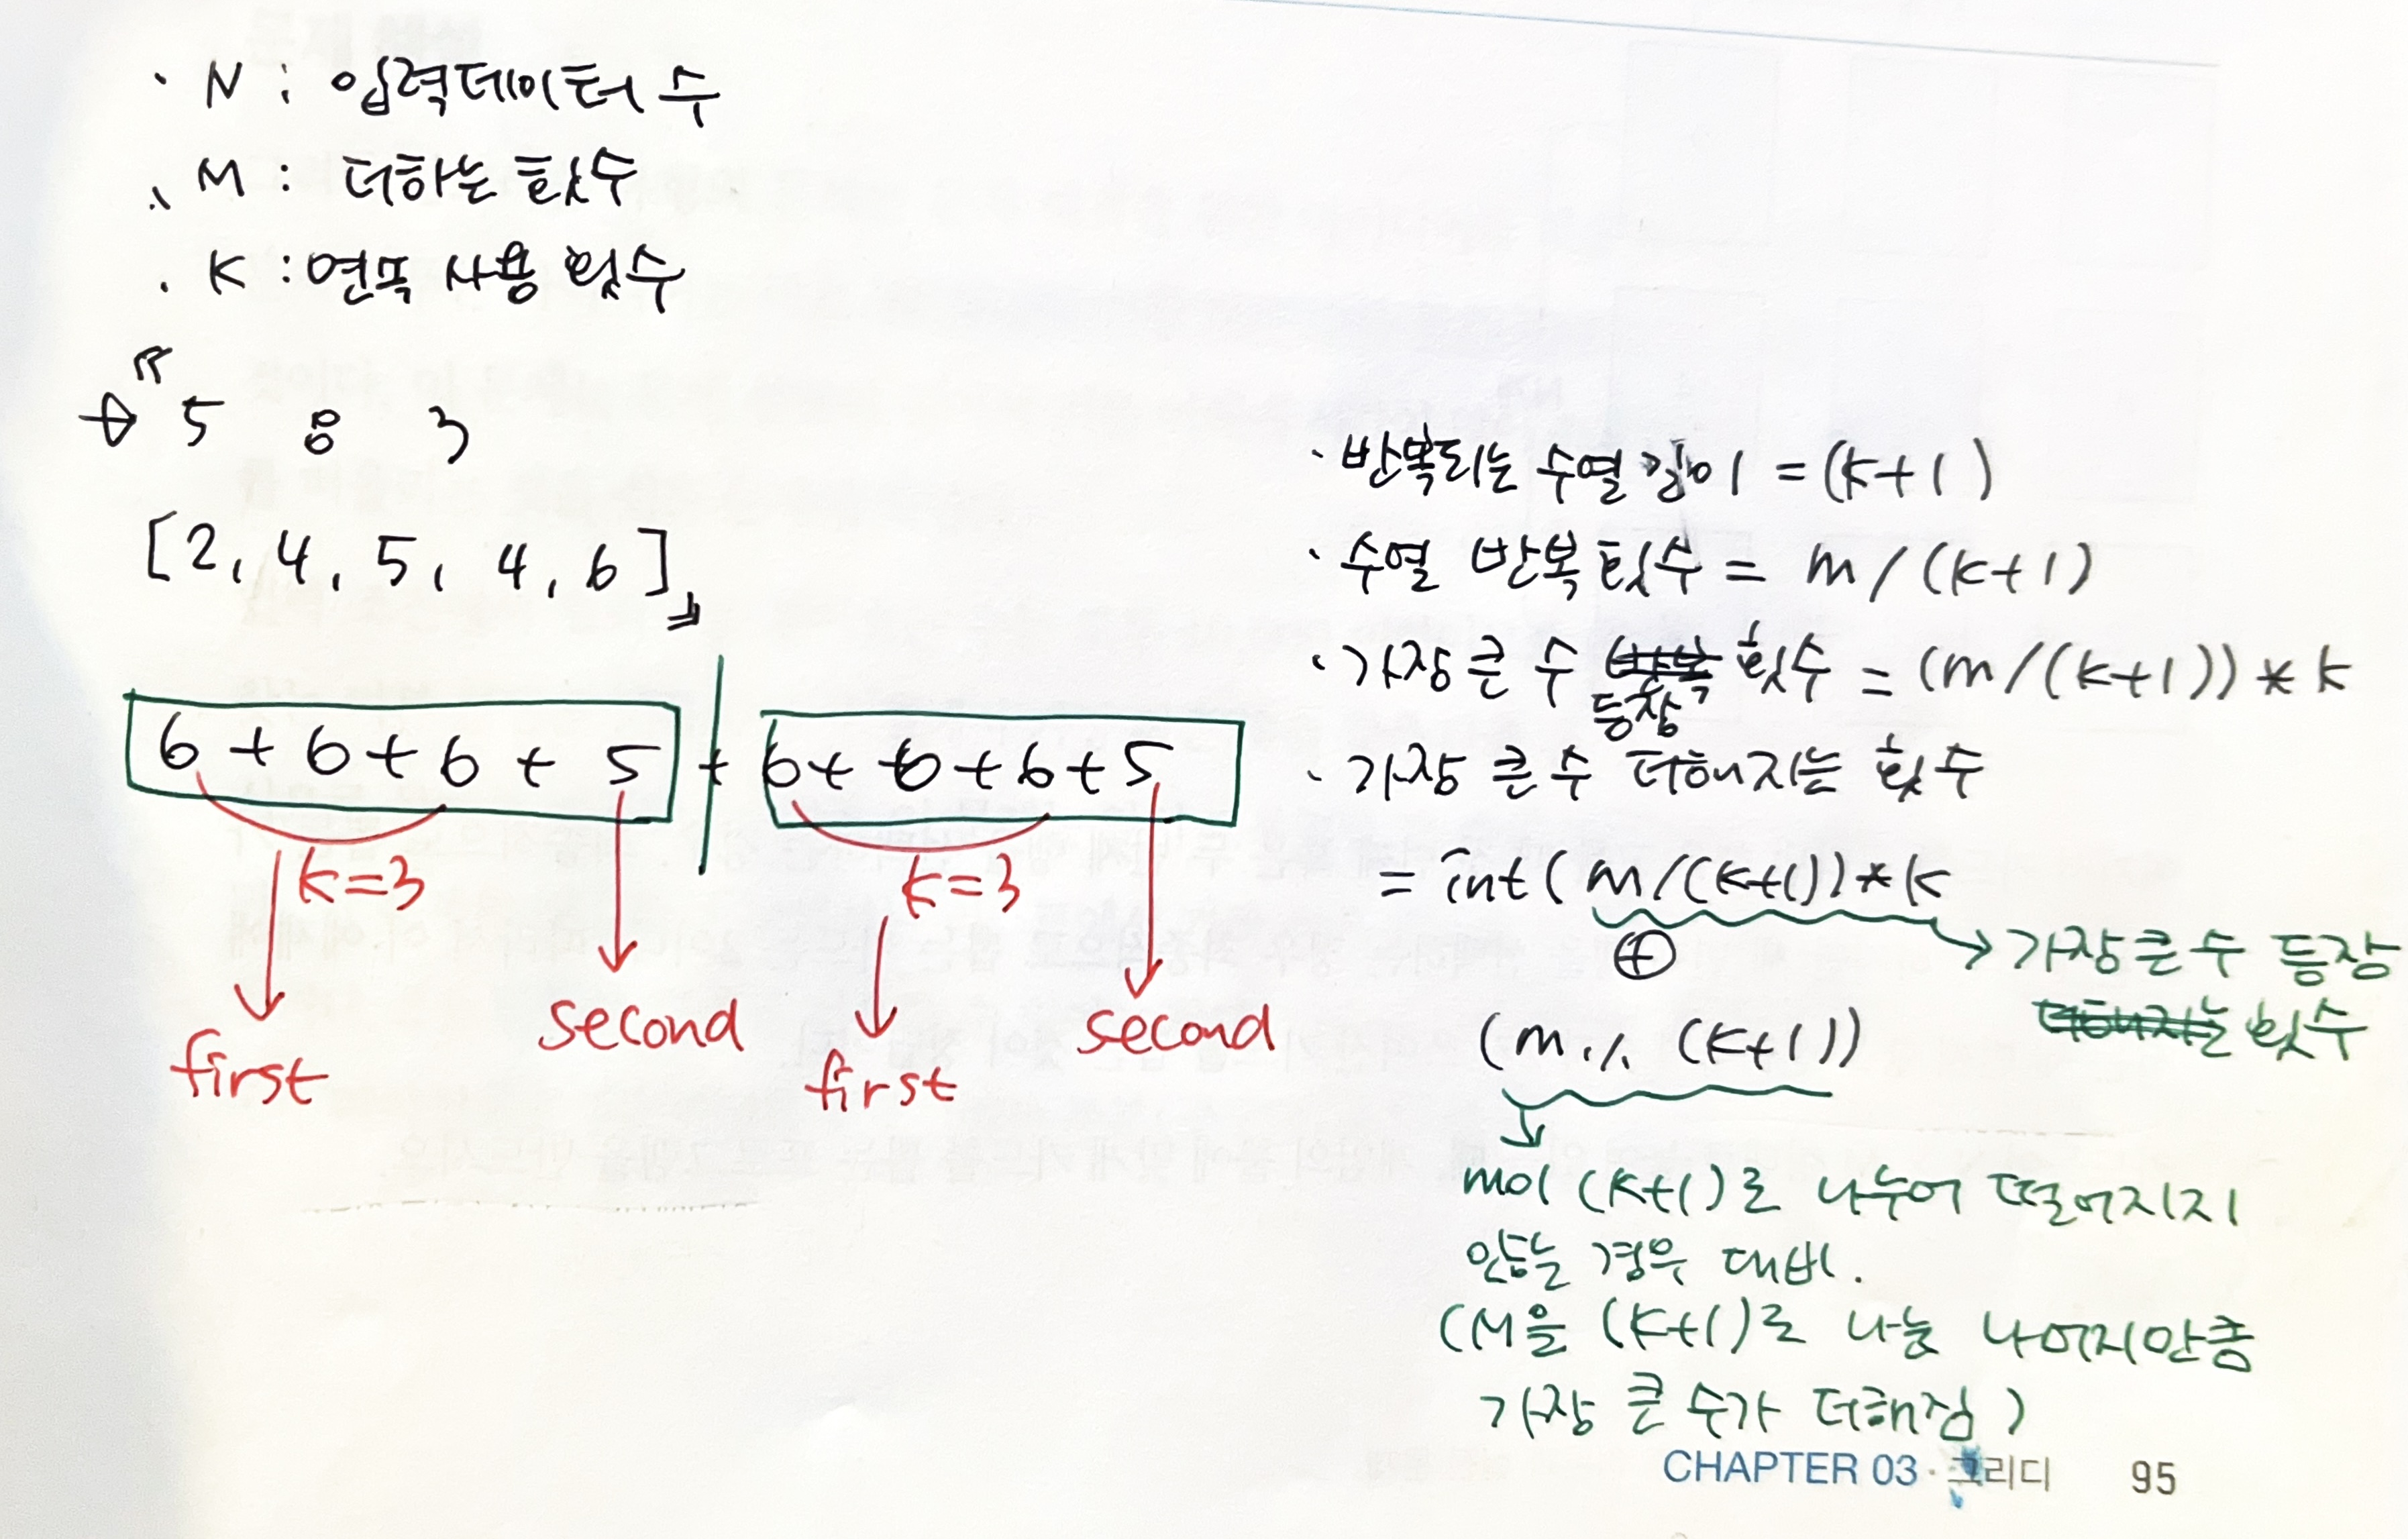 · N : 입력데이터 수
· M : 더하는 횟수
· K : 연속 사용 횟수
『
→ 5 8 3
[2, 4, 5, 4, 6]』
6 + 6 + 6 + 5 + 6 + 6 + 6 + 5
k=3 k=3
first second first second
· 반복되는 수열 길이 = (k+1)
· 수열 반복 횟수 = m / (k+1)
· 가장 큰 수 등장 횟수 = (m/(k+1)) * k
· 가장 큰 수 더해지는 횟수
= int(m/(k+1))*k
→ 가장 큰 수 등장
횟수
⊕
(m % (k+1))
m이 (k+1)로 나누어 떨어지지
않는 경우 대비.
(M을 (k+1)로 나눈 나머지만큼
가장 큰 수가 더해짐)
CHAPTER 03 · 그리디 95